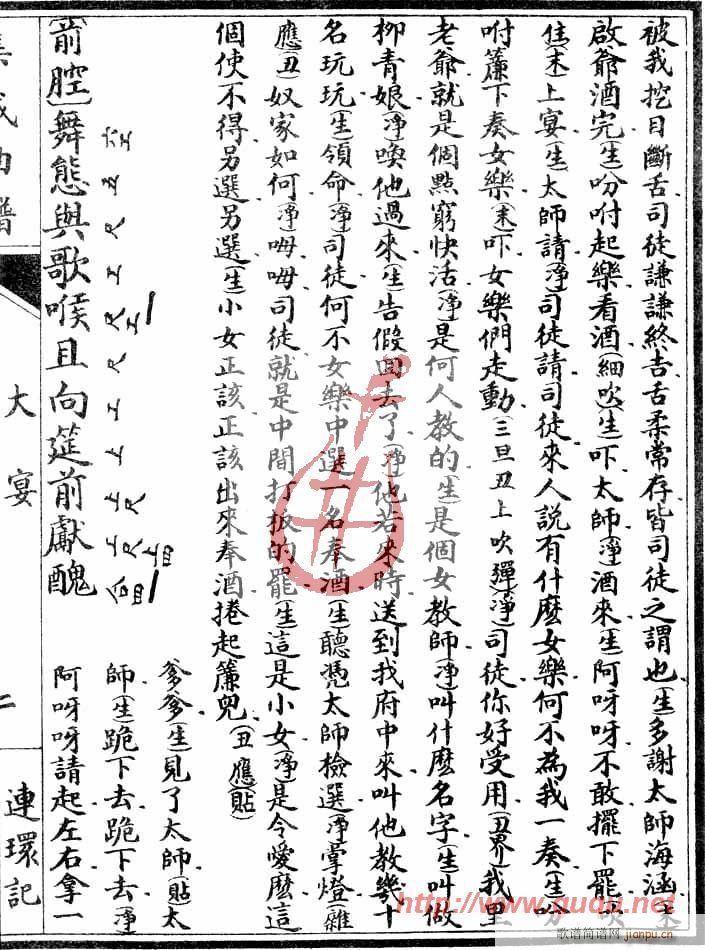 被我挖目斷舌司徒謙謙終吉舌柔常存皆司徒之謂也(生)多謝太師海涵
啟爺酒完(生)吩咐起樂看酒(細吹)(生)吓太師(淨)酒來(生)阿呀呀不敢擺下罷
(末)上宴(生)太師請(淨)司徒請司徒來人説有什麽女樂何不為我一奏(生)吩
咐簾下奏女樂(末)吓女樂們走動(三旦丑上吹彈)(淨)司徒你好受用(丑界)我里
老爺就是個點窮快活(淨)是何人教的(生)是個女教師(淨)叫什麽名字(生)叫做
柳青娘(淨)喚他過來(生)告假回去了(淨)他若來時送到我府中來叫他教幾十
名玩玩(生)領命(淨)司徒何不女樂中選一名奉酒(生)聽憑太師檢選(淨)掌燈雜
應(丑)奴家如何(淨)呣呣司徒就是中間打板的罷(生)這是小女(淨)是令愛麽這
個使不得另選另選(生)小女正該正該出來奉酒捲起簾兒(丑應)(貼)
[前腔]舞態與歌喉且向筵前獻醜
爹爹(生)見了太師(貼)太
師(生)跪下去跪下去(淨)
阿呀呀請起左右拿一
集成曲譜
大宴
二
連環記
http://www.ququ.net
歌谱简谱网
jianpu.cn